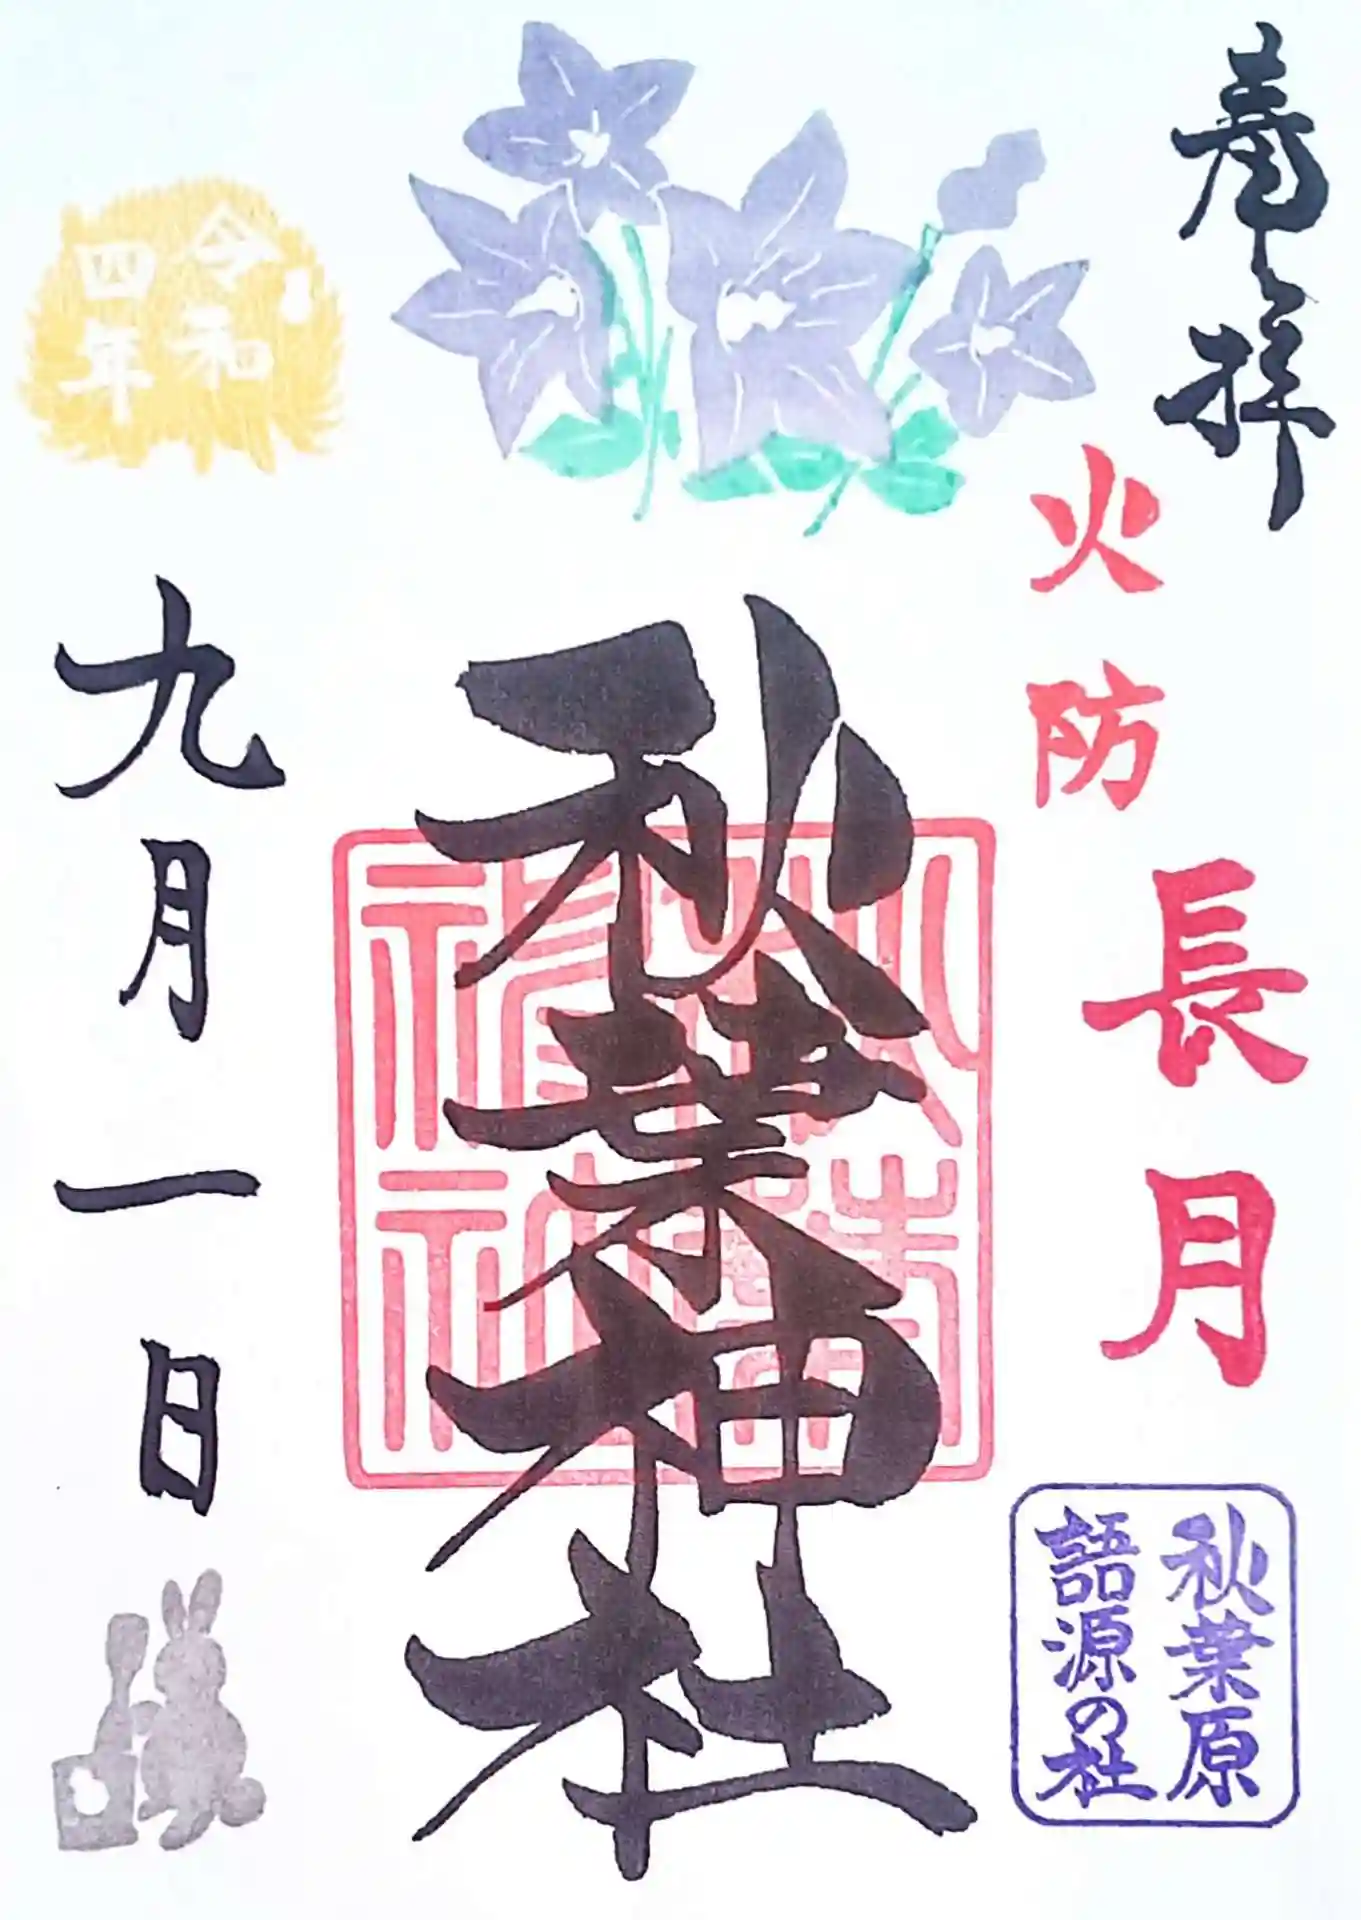 奉拝
火防
長月
秋葉原
語源の社
秋葉神社
秋葉
神社
令和
四年
九月一日